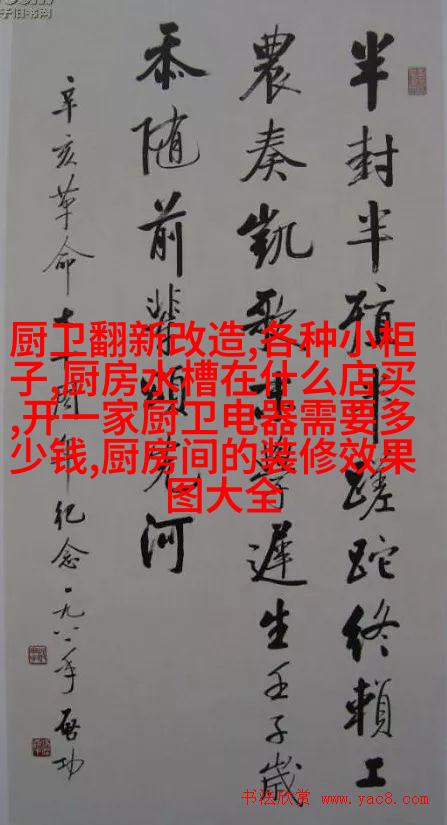 子旧书网
半封半殖半蹉跎終賴工
農奏凱歌學遲生壬子歲
忝随前輩頌先河
辛亥革命七十周年紀念一九八一年 啓功
厨卫翻新改造,各种小柜
子,厨房水槽在什么店买
,开一家厨卫电器需要多
少钱,厨房间的装修效果
图大全
书法欣赏
www.yac8.com